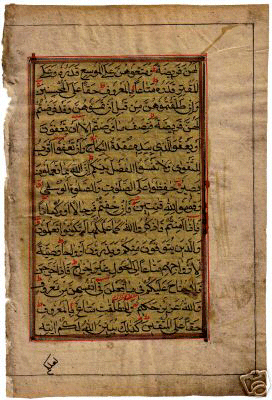 لهن فريضة ومتعوهن على الموسع قدره وعلى
المقتر قدره متاعا بالمعروف حقا على المحسنين
وان طلقتموهن من قبل ان تمسوهن وقد فرضتم
لهن فريضة فنصف ما فرضتم الا ان يعفون
او يعفوا الذى بيده عقدة النكاح وان تعفوا اقرب
للتقوى ولا تنسوا الفضل بينكم ان الله بما تعملون
بصير حافظوا على الصلوات والصلوة الوسطى
وقوموا لله قانتين فان خفتم فرجالا او ركبانا
فاذا امنتم فاذكروا الله كما علمكم ما لم تكونوا تعلمون
والذين يتوفون منكم ويذرون ازواجا وصية
لازواجهم متاعا الى الحول غير اخراج فان خرجن
فلا جناح عليكم فى ما فعلن فى انفسهن من معروف
والله عزيز حكيم وللمطلقات متاع بالمعروف
حقا على المتقين كذلك يبين الله لكم اياته
لعلكم